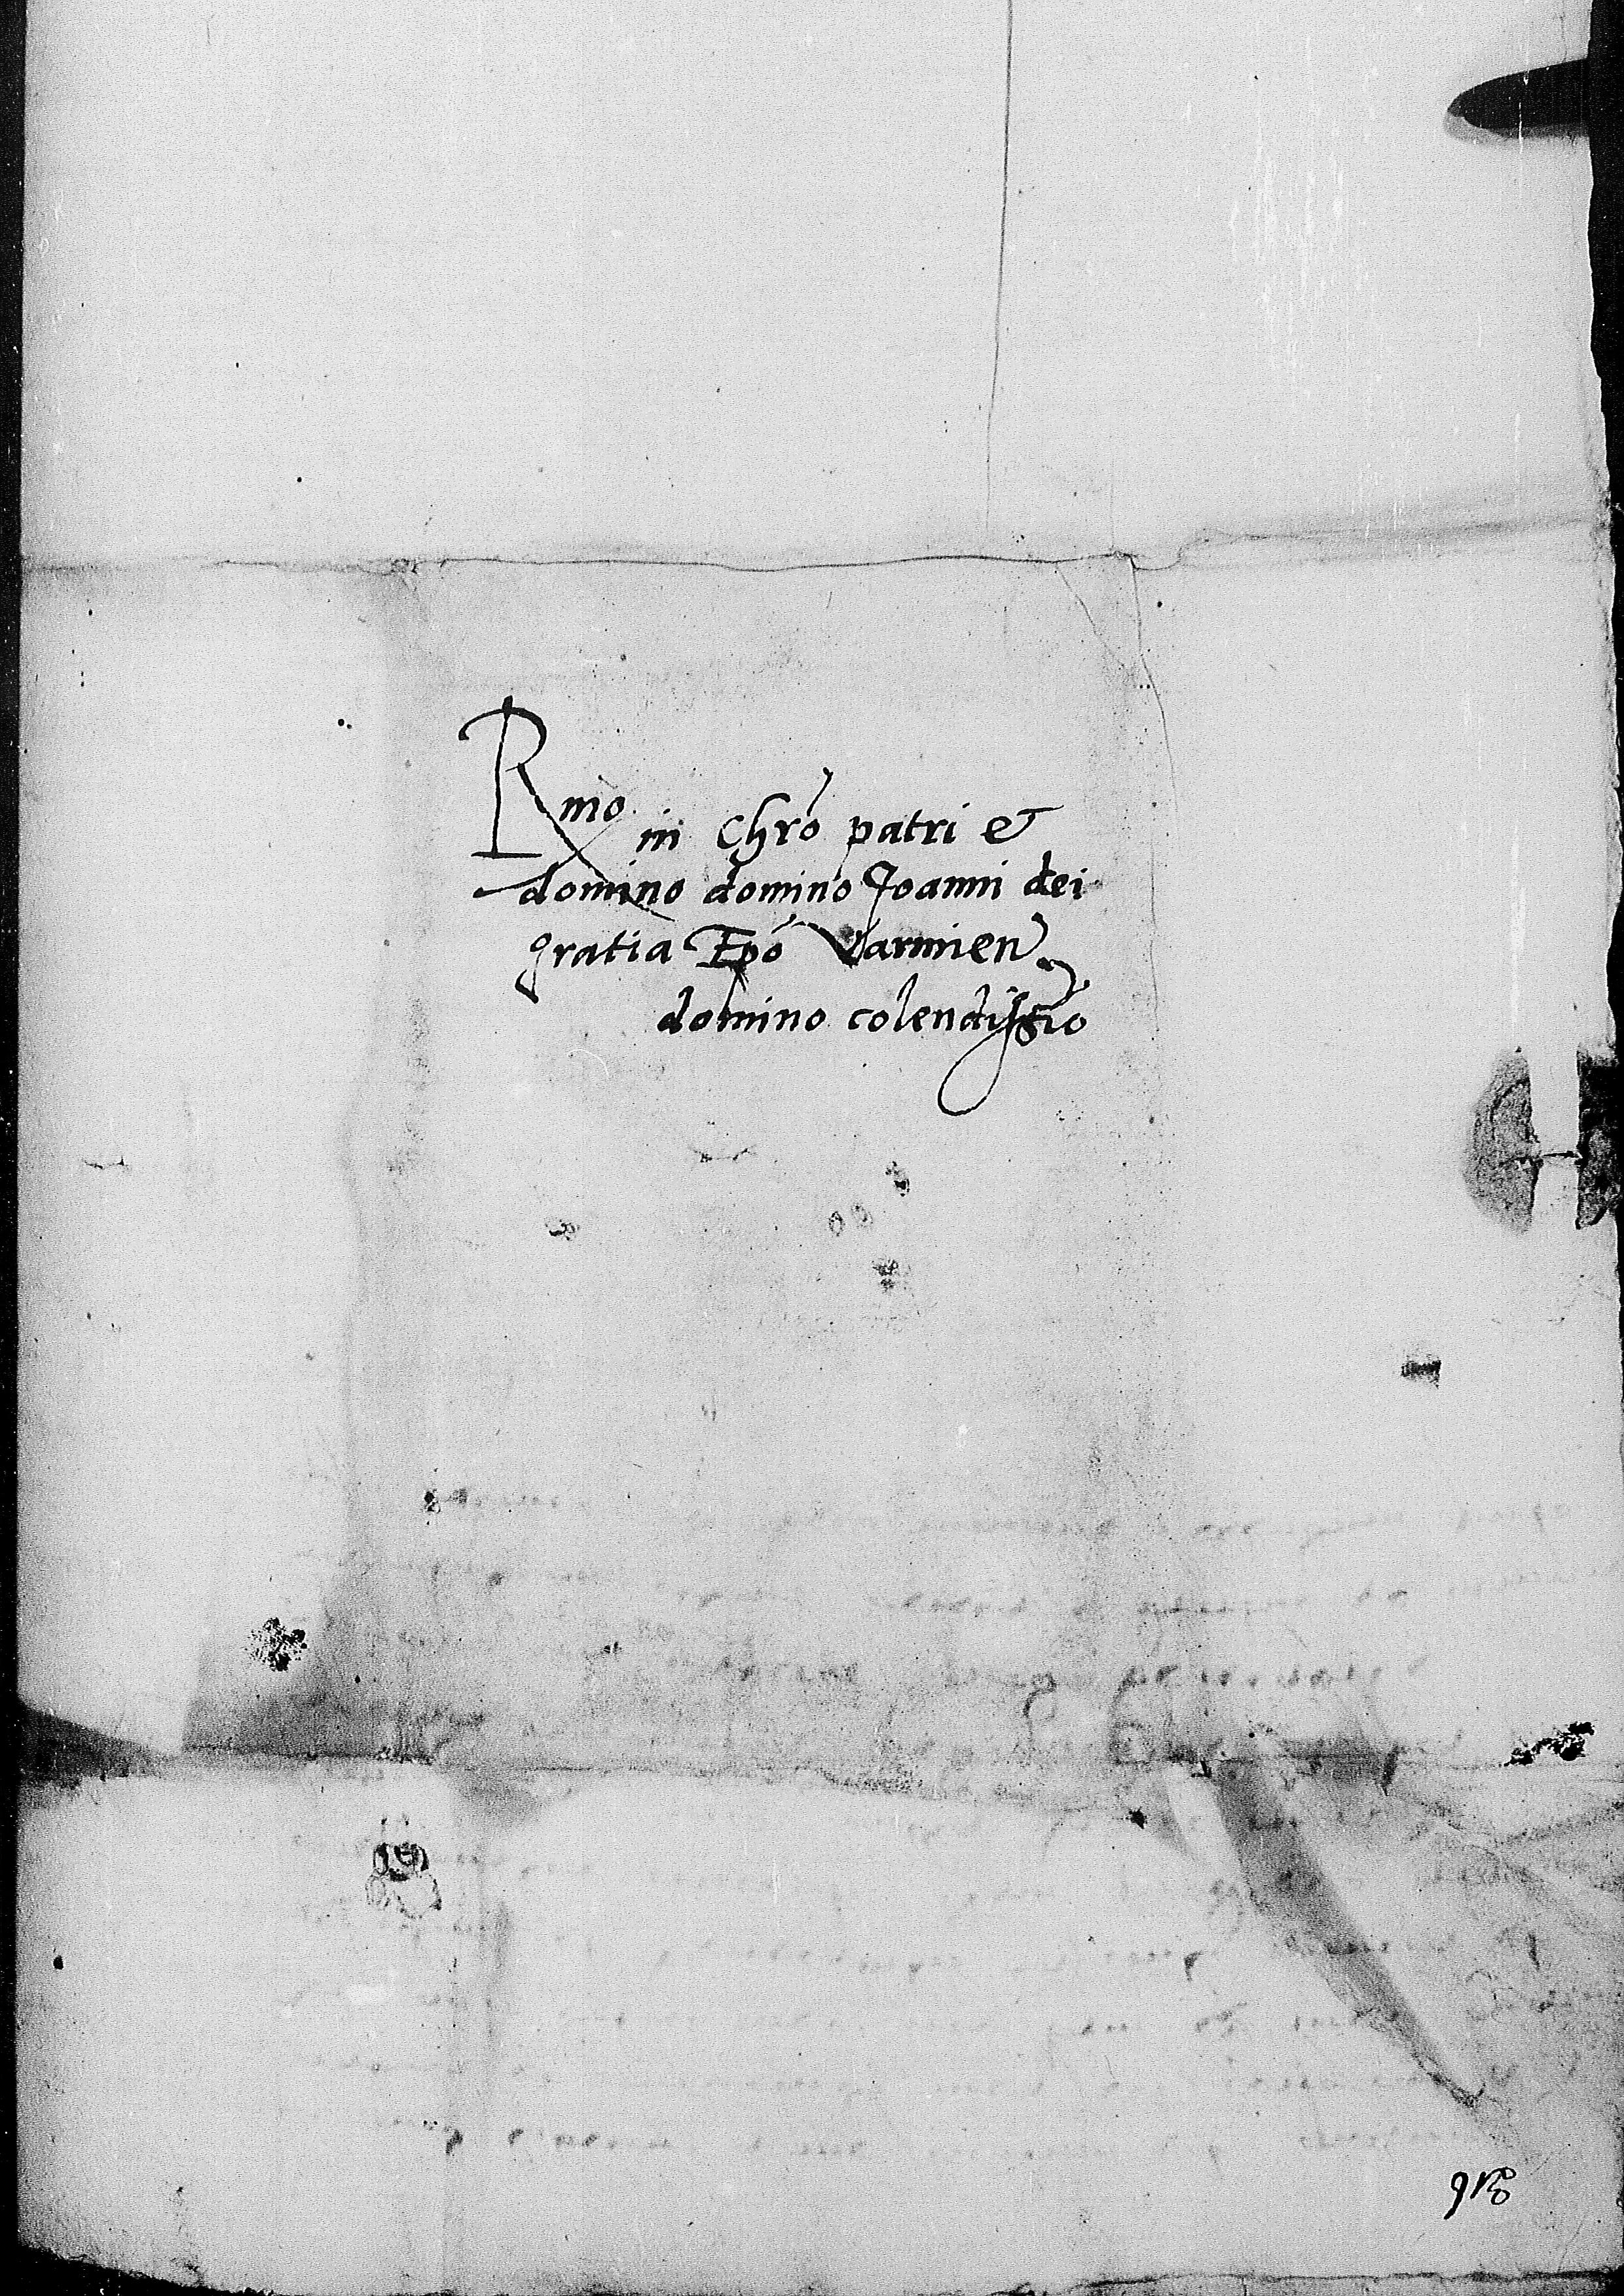 Rmo in Chrõ patri &
domino domino Joanni dei
gratia Epõ Varmien
domino colendissio